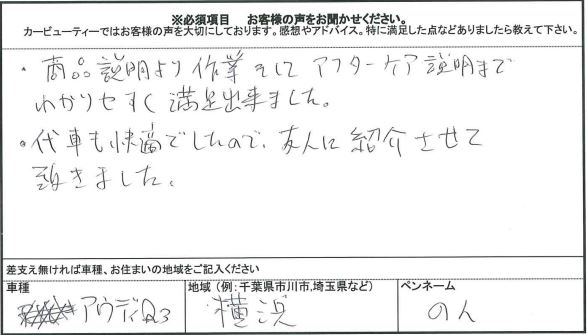 ※必須項目　お客様の声をお聞かせください。
カービューティーではお客様の声を大切にしております。感想やアドバイス。特に満足した点などありましたら教えて下さい。
・商品説明より作業そしてアフターケア説明まで
わかりせすく満足出来ました。
・代車も快適でしたので、友人に紹介させて
頂きました。
差支え無ければ車種、お住まいの地域をご記入ください
車種 地域（例：千葉県市川市,埼玉県など） ペンネーム
アウディQ3 横浜 のん